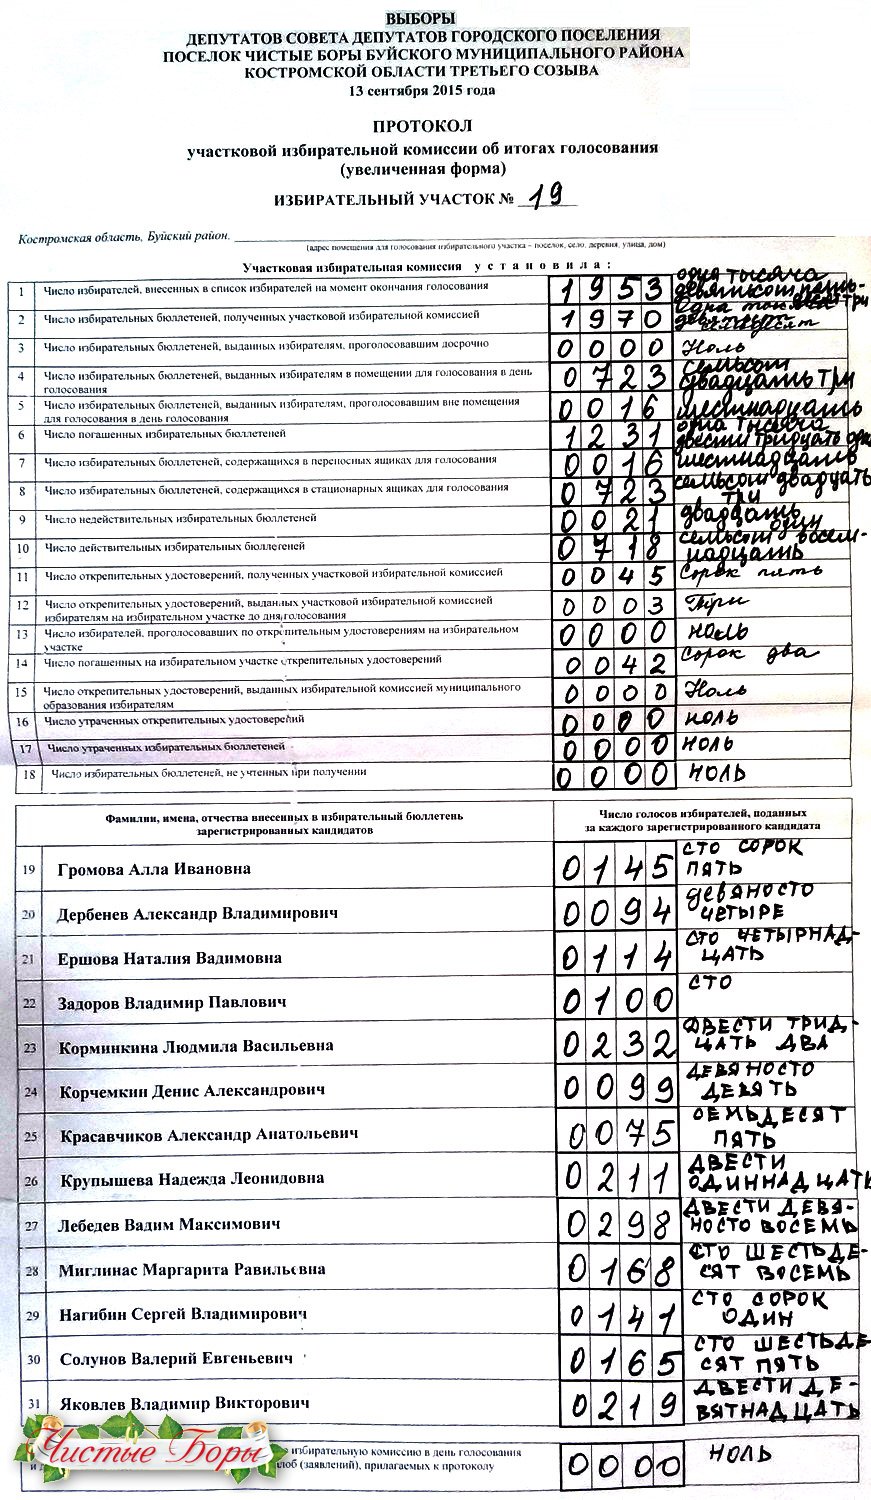 ВЫБОРЫ
ДЕПУТАТОВ СОВЕТА ДЕПУТАТОВ ГОРОДСКОГО ПОСЕЛЕНИЯ
ПОСЕЛОК ЧИСТЫЕ БОРЫ БУЙСКОГО МУНИЦИПАЛЬНОГО РАЙОНА
КОСТРОМСКОЙ ОБЛАСТИ ТРЕТЬЕГО СОЗЫВА
13 сентября 2015 года
ПРОТОКОЛ
участковой избирательной комиссии об итогах голосования
(увеличенная форма)
ИЗБИРАТЕЛЬНЫЙ УЧАСТОК № 19
Костромская область, Буйский район.
(адрес помещения для голосования избирательного участка – поселок, село, деревня, улица, дом)
Участковая избирательная комиссия установила:
1 Число избирателей, внесенных в список избирателей на момент окончания голосования 1953 одна тысяча девятьсот пятьдесят три
2 Число избирательных бюллетеней, полученных участковой избирательной комиссией 1970 Одна тысяча девятьсот семьдесят
3 Число избирательных бюллетеней, выданных избирателям, проголосовавшим досрочно 0000 Ноль
4 Число избирательных бюллетеней, выданных избирателям в помещении для голосования в день
голосования 0723 семьсот двадцать три
5 Число избирательных бюллетеней, выданных избирателям, проголосовавшим вне помещения
для голосования в день голосования 0016 шестнадцать
6 Число погашенных избирательных бюллетеней 1231 одна тысяча двести тридцать одна
7 Число избирательных бюллетеней, содержащихся в переносных ящиках для голосования 0016 шестнадцать
8 Число избирательных бюллетеней, содержащихся в стационарных ящиках для голосования 0723 семьсот двадцать три
9 Число недействительных избирательных бюллетеней 0021 двадцать один
10 Число действительных избирательных бюллетеней 0718 семьсот восемнадцать
11 Число открепительных удостоверений, полученных участковой избирательной комиссией 0045 Сорок пять
12 Число открепительных удостоверений, выданных участковой избирательной комиссией
избирателям на избирательном участке до дня голосования 0003 Три
13 Число избирателей, проголосовавших по открепительным удостоверениям на избирательном
участке 0000 ноль
14 Число погашенных на избирательном участке открепительных удостоверений 0042 Сорок два
15 Число открепительных удостоверений, выданных избирательной комиссией муниципального
образования избирателям 0000 Ноль
16 Число утраченных открепительных удостоверений 0000 ноль
17 Число утраченных избирательных бюллетеней 0000 ноль
18 Число избирательных бюллетеней, не учтенных при получении 0000 НОЛЬ
Фамилии, имена, отчества внесенных в избирательный бюллетень
зарегистрированных кандидатов
Число голосов избирателей, поданных
за каждого зарегистрированного кандидата
19 Громова Алла Ивановна 0145 СТО СОРОК
ПЯТЬ
20 Дербенев Александр Владимирович 0094 ДЕВЯНОСТО
ЧЕТЫРЕ
21 Ершова Наталия Вадимовна 0114 СТО ЧЕТЫРНАД-
ЦАТЬ
22 Задоров Владимир Павлович 0100 СТО
23 Корминкина Людмила Васильевна 0232 ДВЕСТИ ТРИД-
ЦАТЬ ДВА
24 Корчемкин Денис Александрович 0099 ДЕВЯНОСТО
ДЕВЯТЬ
25 Красавчиков Александр Анатольевич 0075 СЕМЬДЕСЯТ
ПЯТЬ
26 Крупышева Надежда Леонидовна 0211 ДВЕСТИ
ОДИННАДЦАТЬ
27 Лебедев Вадим Максимович 0298 ДВЕСТИ ДЕВЯ-
НОСТО ВОСЕМЬ
28 Миглинас Маргарита Равильевна 0168 СТО ШЕСТЬДЕ-
СЯТ ВОСЕМЬ
29 Нагибин Сергей Владимирович 0141 СТО СОРОК
ОДИН
30 Солунов Валерий Евгеньевич 0165 СТО ШЕСТЬДЕ
СЯТ ПЯТЬ
31 Яковлев Владимир Викторович 0219 ДВЕСТИ ДЕ-
ВЯТНАДЦАТЬ
избирательную комиссию в день голосования
(заявлений), прилагаемых к протоколу 0000 НОЛЬ
Чистые Боры